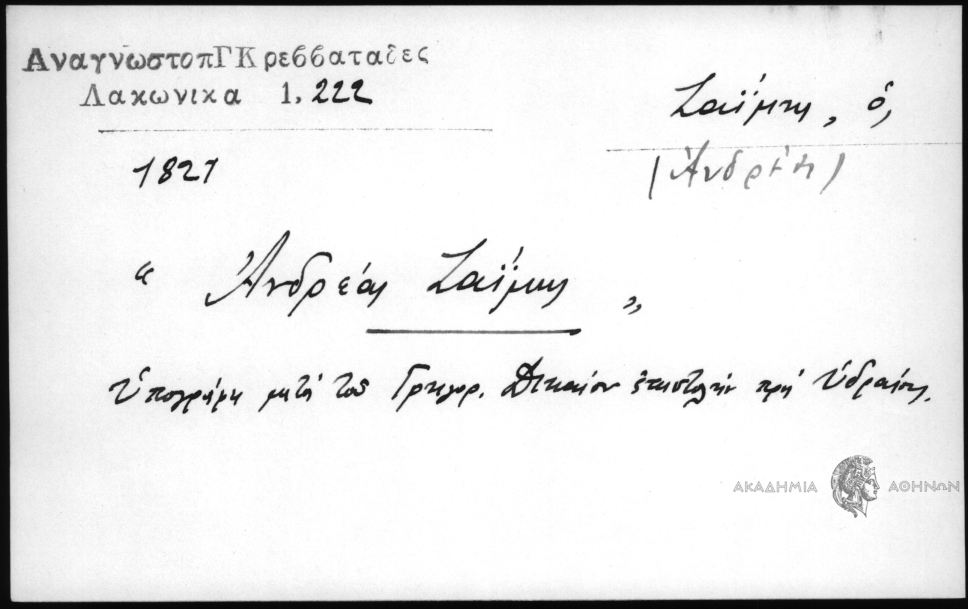 ΑναγνωστοπΓΚρεββαταδες
Λακωνικα 1, 222
Ζαΐμης, ὁ,
(Ἀνδρέα)
1821
“ Ἀνδρέας Ζαΐμης „
Ὑπογράφει μετά τοῦ Γρηγορ. Δικαίου ἐπιστολήν πρός Ὑδραίους.
ΑΚΑΔΗΜΙΑ ΑΘΗΝΩΝ